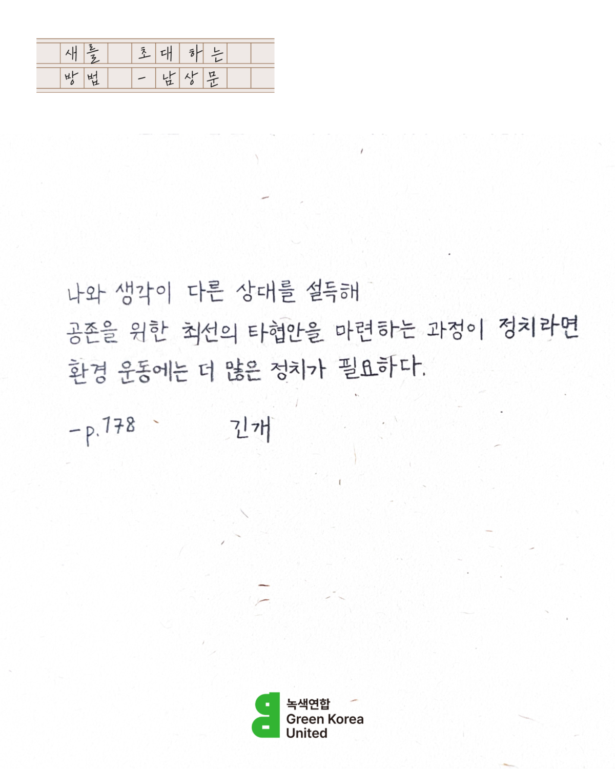 새를 초대하는
방법 - 남상문
나와 생각이 다른 상대를 설득해
공존을 위한 최선의 타협안을 마련하는 과정이 정치라면
환경 운동에는 더 많은 정치가 필요하다.
- p.178 긴개
녹색연합
Green Korea
United